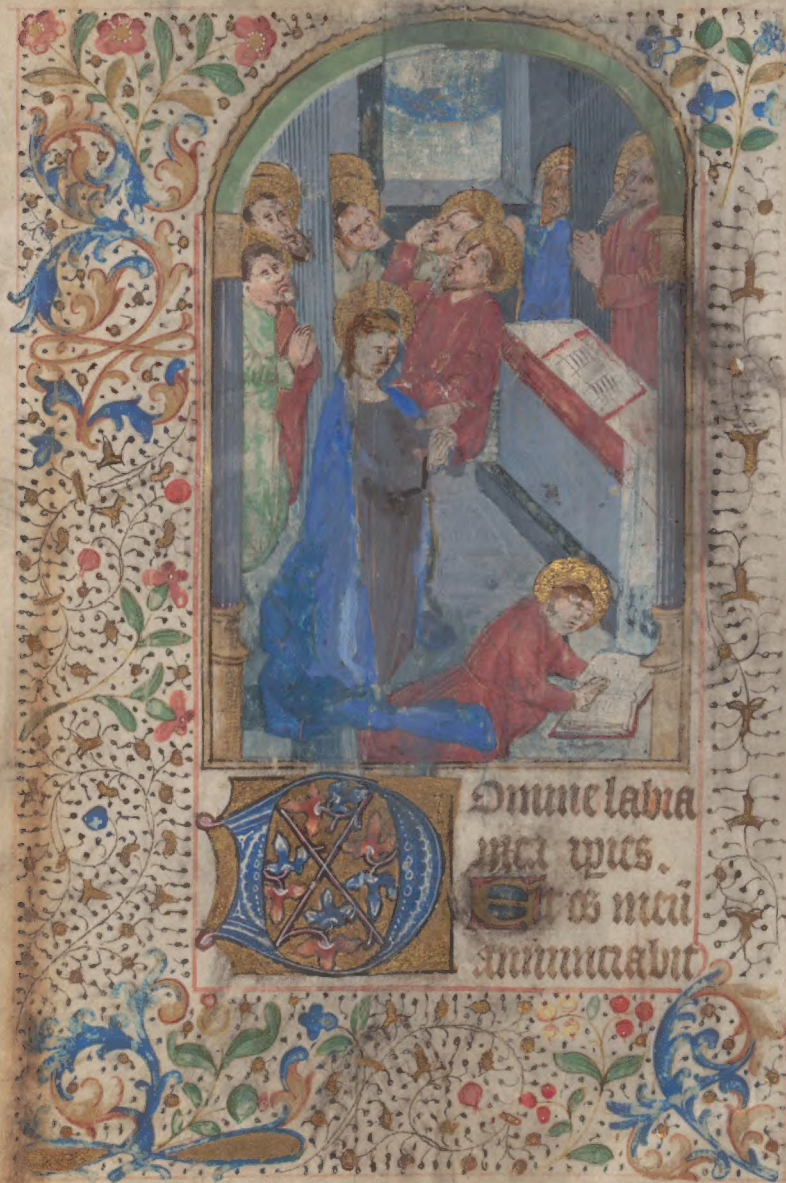 Domine labia
mea apies.
Et os meū
annunciabit